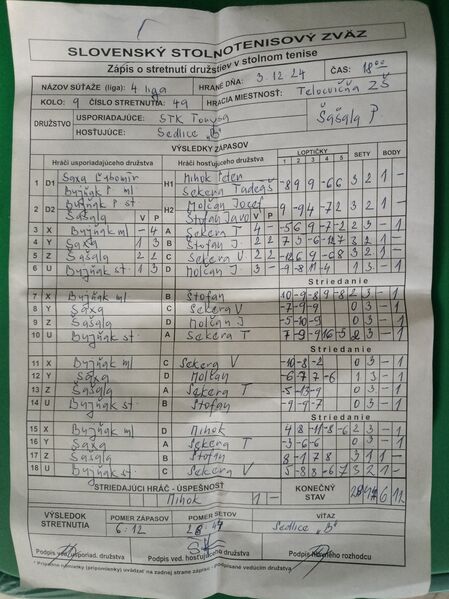 SLOVENSKÝ STOLNOTENISOVÝ ZVÄZ
Zápis o stretnutí družstiev v stolnom tenise
NÁZOV SÚŤAŽE (liga): 4 liga HRANÉ DŇA: 3.12.24 ČAS: 18 00
KOLO: 9 ČÍSLO STRETNUTIA: 49 HRACIA MIESTNOSŤ: Telocvičňa ZŠ
DRUŽSTVO USPORIADAJÚCE: STK Šašala P
HOSŤUJÚCE: Sedlice "B"
VÝSLEDKY ZÁPASOV
Hráči usporiadajúceho družstva Hráči hosťujúceho družstva LOPTIČKY SETY BODY
1 2 3 4 5
1 D1 Saxa Ľubomír H1 Mihok Peter
Bujňák P ml Sekera Tadeáš 3 2 1 -
2 D2 Bujňák P st H2 Molčan Jozef
Šašala Štofan 3 2 1 -
V P V P
3 X Bujňák ml - 4 A Sekera T 4 - 2 3 - 1
4 Y Saxa 1 3 B Štofan J 2 2 3 2 1 -
5 Z Šašala 2 2 C Sekera V 2 2 3 2 1 -
6 U Bujňák st 1 3 D Molčan J 3 - 1 3 - 1
Striedanie
7 X Bujňák ml B Štofan 10 -9 -8 9 -8 2 3 - 1
8 Y Saxa C Sekera V -7 -9 -9 0 3 - 1
9 Z Šašala D Molčan J -5 -10 -9 0 3 - 1
10 U Bujňák st A Sekera T 2 3 - 1
Striedanie
11 X Bujňák ml C Sekera V -10 -8 -2 0 3 - 1
12 Y Saxa D Molčan -6 -7 7 -6 1 3 - 1
13 Z Šašala A Sekera T -5 -13 -9 0 3 - 1
14 U Bujňák st B Štofan -9 -9 -7 0 3 - 1
Striedanie
15 X Bujňák ml D Mihok 4 8 -11 -8 -6 2 3 - 1
16 Y Saxa A Sekera T -3 -6 -6 0 3 - 1
17 Z Šašala B Štofan 8 -1 7 8 3 1 1 -
18 U Bujňák st C Sekera V 5 -8 8 -6 7 3 2 1 -
STRIEDAJÚCI HRÁČ - ÚSPEŠNOSŤ KONEČNÝ STAV 6 12
Mihok 1 -
VÝSLEDOK STRETNUTIA POMER ZÁPASOV POMER SETOV VÍŤAZ
6:12 Sedlice "B"
Podpis ved. usporiad. družstva Podpis ved. hosťujúceho družstva Podpis hlavného rozhodcu
* Prípadné námietky (pripomienky) uvádzať na zadnej strane zápisu - podpísané vedúcim družstva